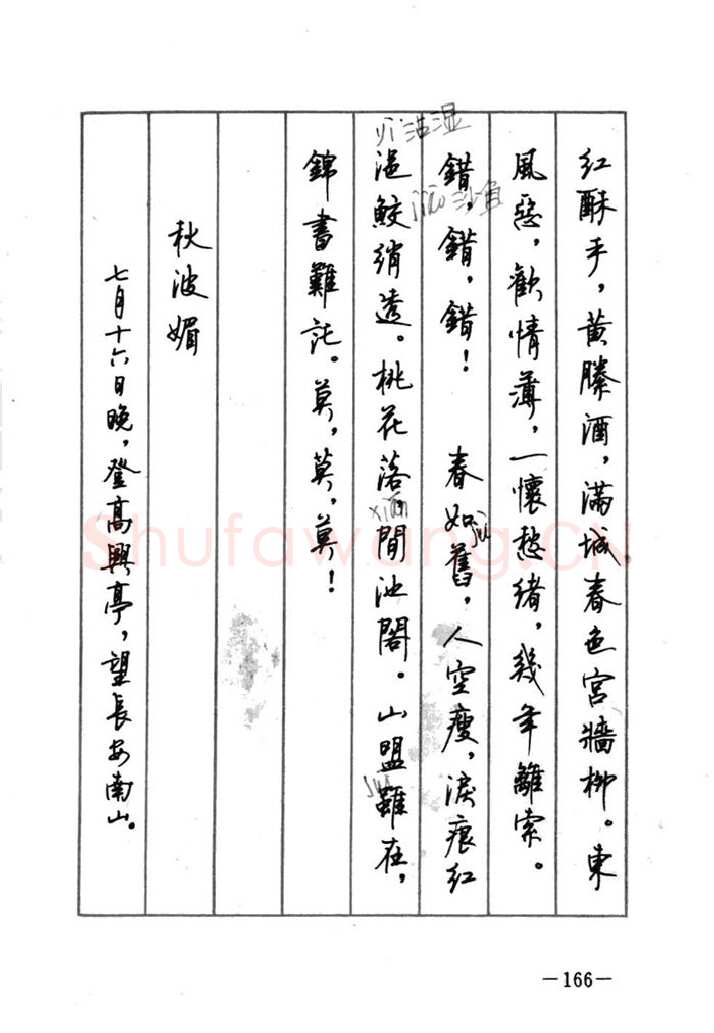 红酥手，黄縢酒，滿城春色宮牆柳。東
風惡，歡情薄，一懷愁緒，幾年離索。
錯，錯，錯！ 春如舊，人空瘦，淚痕红
浥鮫绡透。桃花落，閒池閣。山盟雖在，
錦書難託。莫，莫，莫！
秋波媚
七月十六日晚，登高興亭，望長安南山。
yì 沾湿
jiāo
xián
jiù
suī
Shufawang.CN
—166—